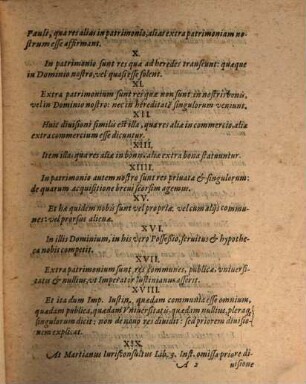 Pauli, qua res alias in patrimonio, alias extra patrimoniam no
strum esse affirmant.
X.
In patrimonio sunt res quæ ad heredes transeunt: quæque
in Dominio nostro, vel quasi esse solent.
XI.
Extra patrimonium sunt res quæ non sunt in nostris bonis,
vel in Dominio nostro: nec in hereditate singulorum veniunt.
XII.
Huic divisioni similis est illa, qua res aliæ in commercio, aliæ
extra commercium esse dicuntur.
XIII.
Item illa: qua res aliæ in bonis: aliæ extra bona statuuntur.
XIIII.
In patrimonio autem nostro sunt res privatæ & singulorum:
de quarum acquisitione brevi seorsim agemus.
XV.
Et hæ quidem nobis sunt vel propriæ vel cum alijs commu
nes: vel prorsus alienæ.
XVI.
In illis Dominium, in his vero Possessio, servitus & hypothe
ca nobis competit.
XVII.
Extra patrimonium sunt res communes, publicæ, vniversi-
tatis, & nullius, vt Imperator Iustinianus asserit.
XVIII.
Et ita dum Imp. Iustin. quædam communia esse omnium,
quædam publica, quædam Vniversitatis: quædam nullius, pleraq;
singularum dicit: non de nono res dividit: sed priorem divisio-
nem explicat.
XIX.
At Martianus Iurisconsultus Lib. 3. Inst. omissa priore di
A 2 uisione